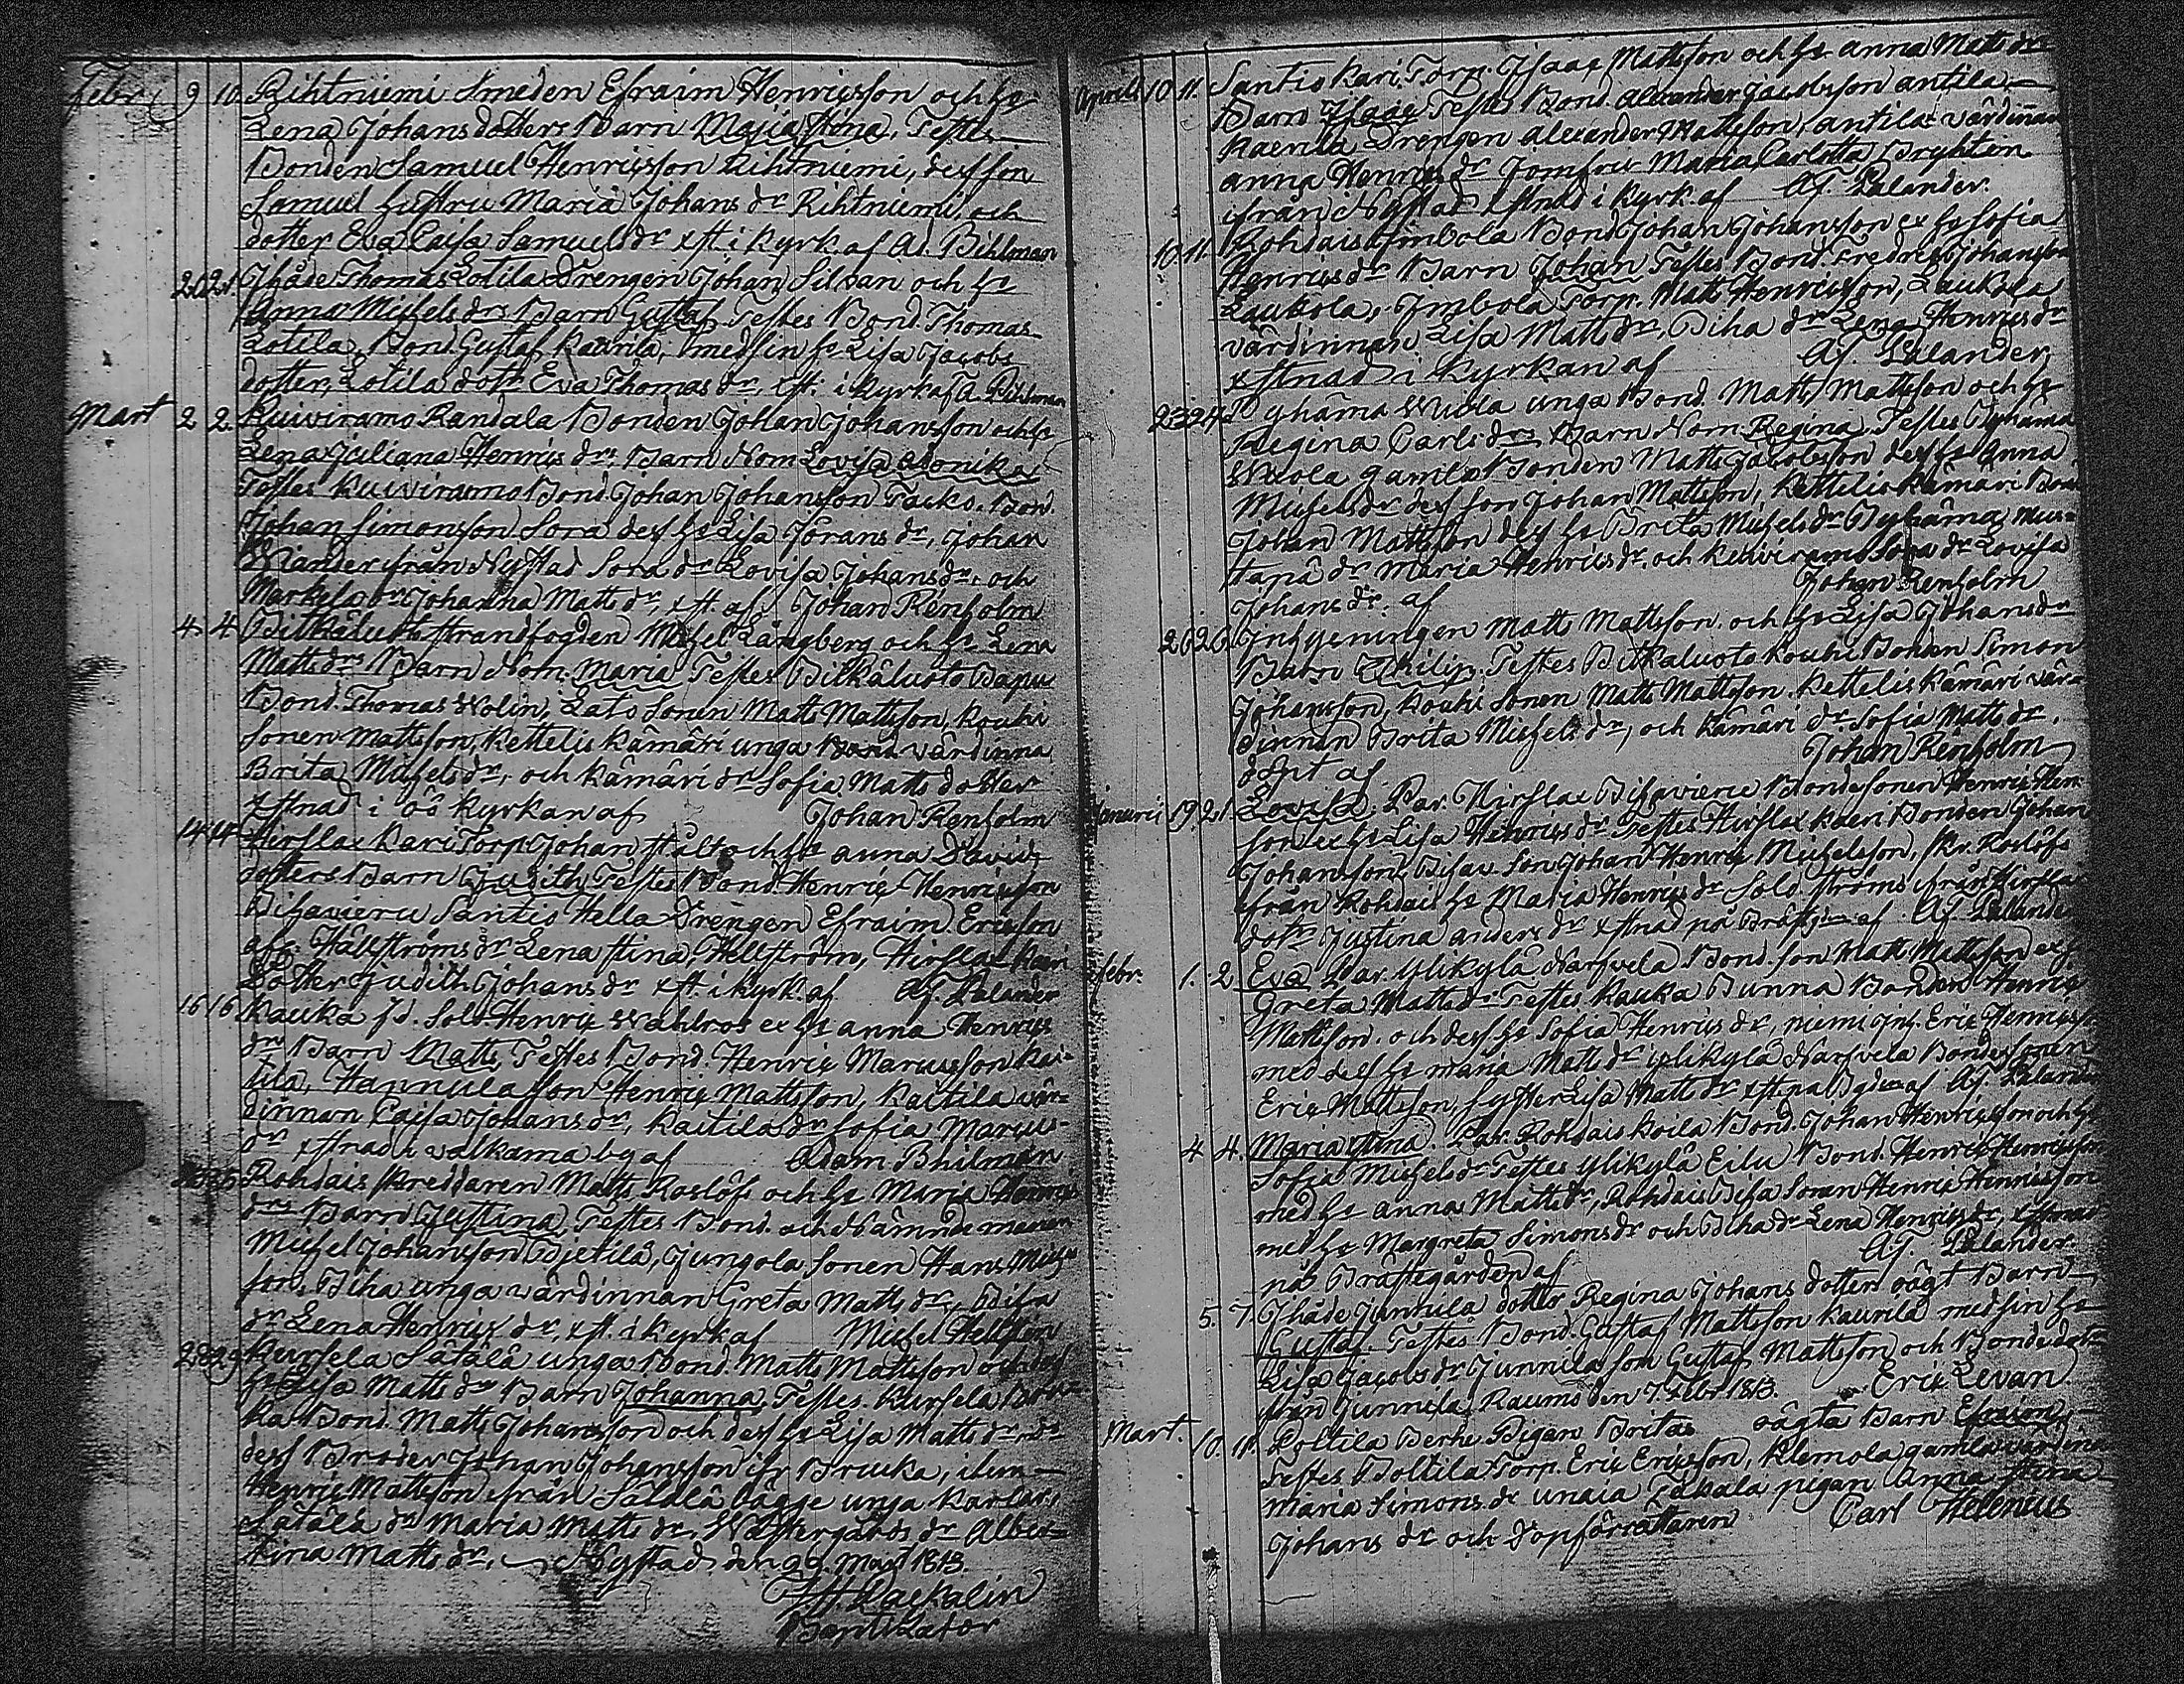 Febr. 9 10 Rihtniemi Smeden Efraim Henricsson och hs
Lena Johans dotters Barn Maja Stina, Testes
Bonden Samuel Henricsson Rihtniemi, dess son
Samuel hustru Maria Johans dr Rihtniemi, och
dotter Eva Caisa Samuels dr xst. i kyrk. af Ad. Bihlman
20 21 Ihåde Thomas Lotila Drengen Johan Silvan och hs
Anna Michels drs Barn Gustaf Testes Bond. Thomas
Lotila, Bond. Gustaf Kaurila, med sin hs Lisa Jacobs
dotter, Lotila dotr Eva Thomas dr, xst. i kyrk af A. Bihlman
Mart 2 2 Kuiviramo Randala Bonden Johan Johansson och hs
Lena Juliana Henrics drs Barn Nom. Lovisa Monika
Testes Kuiviramo Bond. Johan Johansson Bond.
Johan Simonsson Sora dess hs Lisa Jörans dr, Johan
Wiander från Nystad Sora dr Lovisa Johans dr, och
Markela dr Johanna Matts dr, xst. af Johan Renholm
4 4 Pitkäluoto Strandfogden Michel Långberg och hs Lena
Matts drs Barn Nom. Maria Testes Pitkäluoto Papu
Bond. Thomas Wolin, Lats Sonen Matts Mattsson, Kouhi
Sonen Mattsson, Kettelis Kämäri unga värdinna
Brita Michels dr, och Kämäri dr Sofia Matts dotter
xstnad i öö kyrkan af Johan Renholm
14 14 Hirslax Kari Torp. Johan Stålt och hs Anna Davids
dotters Barn Judith, Testes Bond. Henric Henricsson
Pisavieru Santio Hella Drengen Efraim Ericsson
afs. Hällströms dr Lena Stina Hellström, Hirslax Kari
Dotter Judith Johans dr xst. i kyrk. af Af. Palander
16 16 Kauka fd. Sold. Henric Wahlros ex hs Anna Henrics
drs Barn Matts, Testes Bond. Henric Marcusson Kai-
tila, Hannula Son Henric Mattsson, Kaitila vär-
dinnan Caisa Johans dr, Kaitila dr Sofia Marcus-
dr xstnad i Walkama by af Adam Bihlman
Rohdais Skreddaren Matts Roslöfs och hs Maria Henrics
drs Barn Justina, Testes Bond. och Nämndemannen
Michel Johansson Pjetilä, Jungola Sonen Hans Michels
son, Piha unga värdinnan Greta Matts dr, Pisa
dr Lena Henrics dr, xst. i kyrk af Michel Hellsten
28 29 Kursela Sätälä unga Bond. Matts Mattsson och dess
hs Lisa Matts drs Barn Johanna, Testes. Kursela Bruu-
ka Bond. Matts Johansson och dess hs Lisa Matts dr
dess Broder Johan Johansson ifr Bruuka, item
Henric Mattsson från Sätälä bägge unga karlar,
Sätälä dr Maria Matts dr. Wästergårds dr Alber-
tina Matts dr. Nystad den 29. Mart 1813.
Baptizator
Aprill 10 11 Santio Kari Torp. Isaac Mattsson och hs Anna Matts drs
Barn Isaac Testes Bond. Alexander Jacobsson Antila
Kaerila Drengen Alexander Mattsson, Antila värdinnan
Anna Henrics dr Jomfru Maria Carlotta Bryhten
ifrån Nystad xstnad i kyrk. af Af. Palander.
10 11 Rohdais Imbola Bond. Johan Johansson ex hs Sofia
Henrics drs Barn Johan Testes Bond. Fredric Johansson
Laukola, Imbola Torp. Matts Henricsson, Laukola
värdinnan Lisa Matts dr, Piha dr Lena Henrics dr
xstnad i Kyrkan af Af. Palander
23 24 Pyhämaa Wiola unga Bond. Matts Mattsson och hs
Regina Carls drs Barn Nom. Regina Testes Pyhämaa
Wiola gamla Bonden Matts Jacobsson dess hs Anna
Michels dr dess son Johan Mattsson, Kettelis Kämäri Bond.
Johan Mattsson dess hs Brita Michels dr Pyhämaa Mus-
tapä dr Maria Henrics dr, och Kuiviramo Sora dr Lovisa
Johans dr. af Johan Renholm
26 26 Inhysningen Matts Mattsson och hs Lisa Johans drs
Barn Philip. Testes Pitkäluoto Kouhi Bonden Simon
Johansson, Kouhi Sonen Matts Mattsson. Kettelis Kämäri vär-
dinnan Brita Michels dr, och Kämäri dr Sofia Matts dr.
döpt af Johan Renholm
Januari 19 21 Lovisa. Par. Hirslax Pisavieru Bondesonen Henric Hen-
son ex hs Lisa Henrics dr Testes Hirslax Kaeri Bonden Johan
Johansson, Pisa Son Johan Henric Michelsson, Skr. Roslöfs
ifrån Rohdais hs Maria Henrics dr Sold. Ströms ifrån Hirslax
dotr Justina Anders dr xstnad på Prästg. af Af. Palander
Febr. 1. 2 Eva Par. Ylikylä Narsvela Bond. son Matts Mattsson ex hs
Greta Matts dr Testes Kauka Bunna Bonden Henric
Mattsson och dess hs Sofia Henrics dr, Niemi Inh. Eric Henricsson
med dess hs Maria Matts dr Ylikylä Narsvela Bondesonen
Eric Mattsson, Syster Lisa Matts dr af Af. Palander
4 4. Maria Stina. Par. Rohdais Koila Bond. Johan Henricsson och hs
Sofia Michels dr Testes Ylikylä Eilu Bond. Henric Henricsson
med hs Anna Matts dr, Rohdais Pisa Sonen Henric Henricsson
med hs Margreta Simons dr och Piha dr Lena Henrics dr, xstnad
på Prästegården af Af. Palander.
5 7. Ihåde Junnila dotter Regina Johans dotters oägt Barn
Gustaf. Testes Bond. Gustaf Mattsson Kaurila med sin hs
Lisa Jacobs dr Junnila Son Gustaf Mattsson och Bonde dotr
från Junnila Raumo den 7 Febr 1813. Eric Levan
Mart. 10. 11. Poltila Perhe Pigan Britas oägta Barn Efraim,
Testes Poltila Torp. Eric Ericsson, Klemola gamla värdinna
Maria Simons dr unaia Takala pigan Anna Stina
Johans dr och Dopförrättaren Carl Helenius